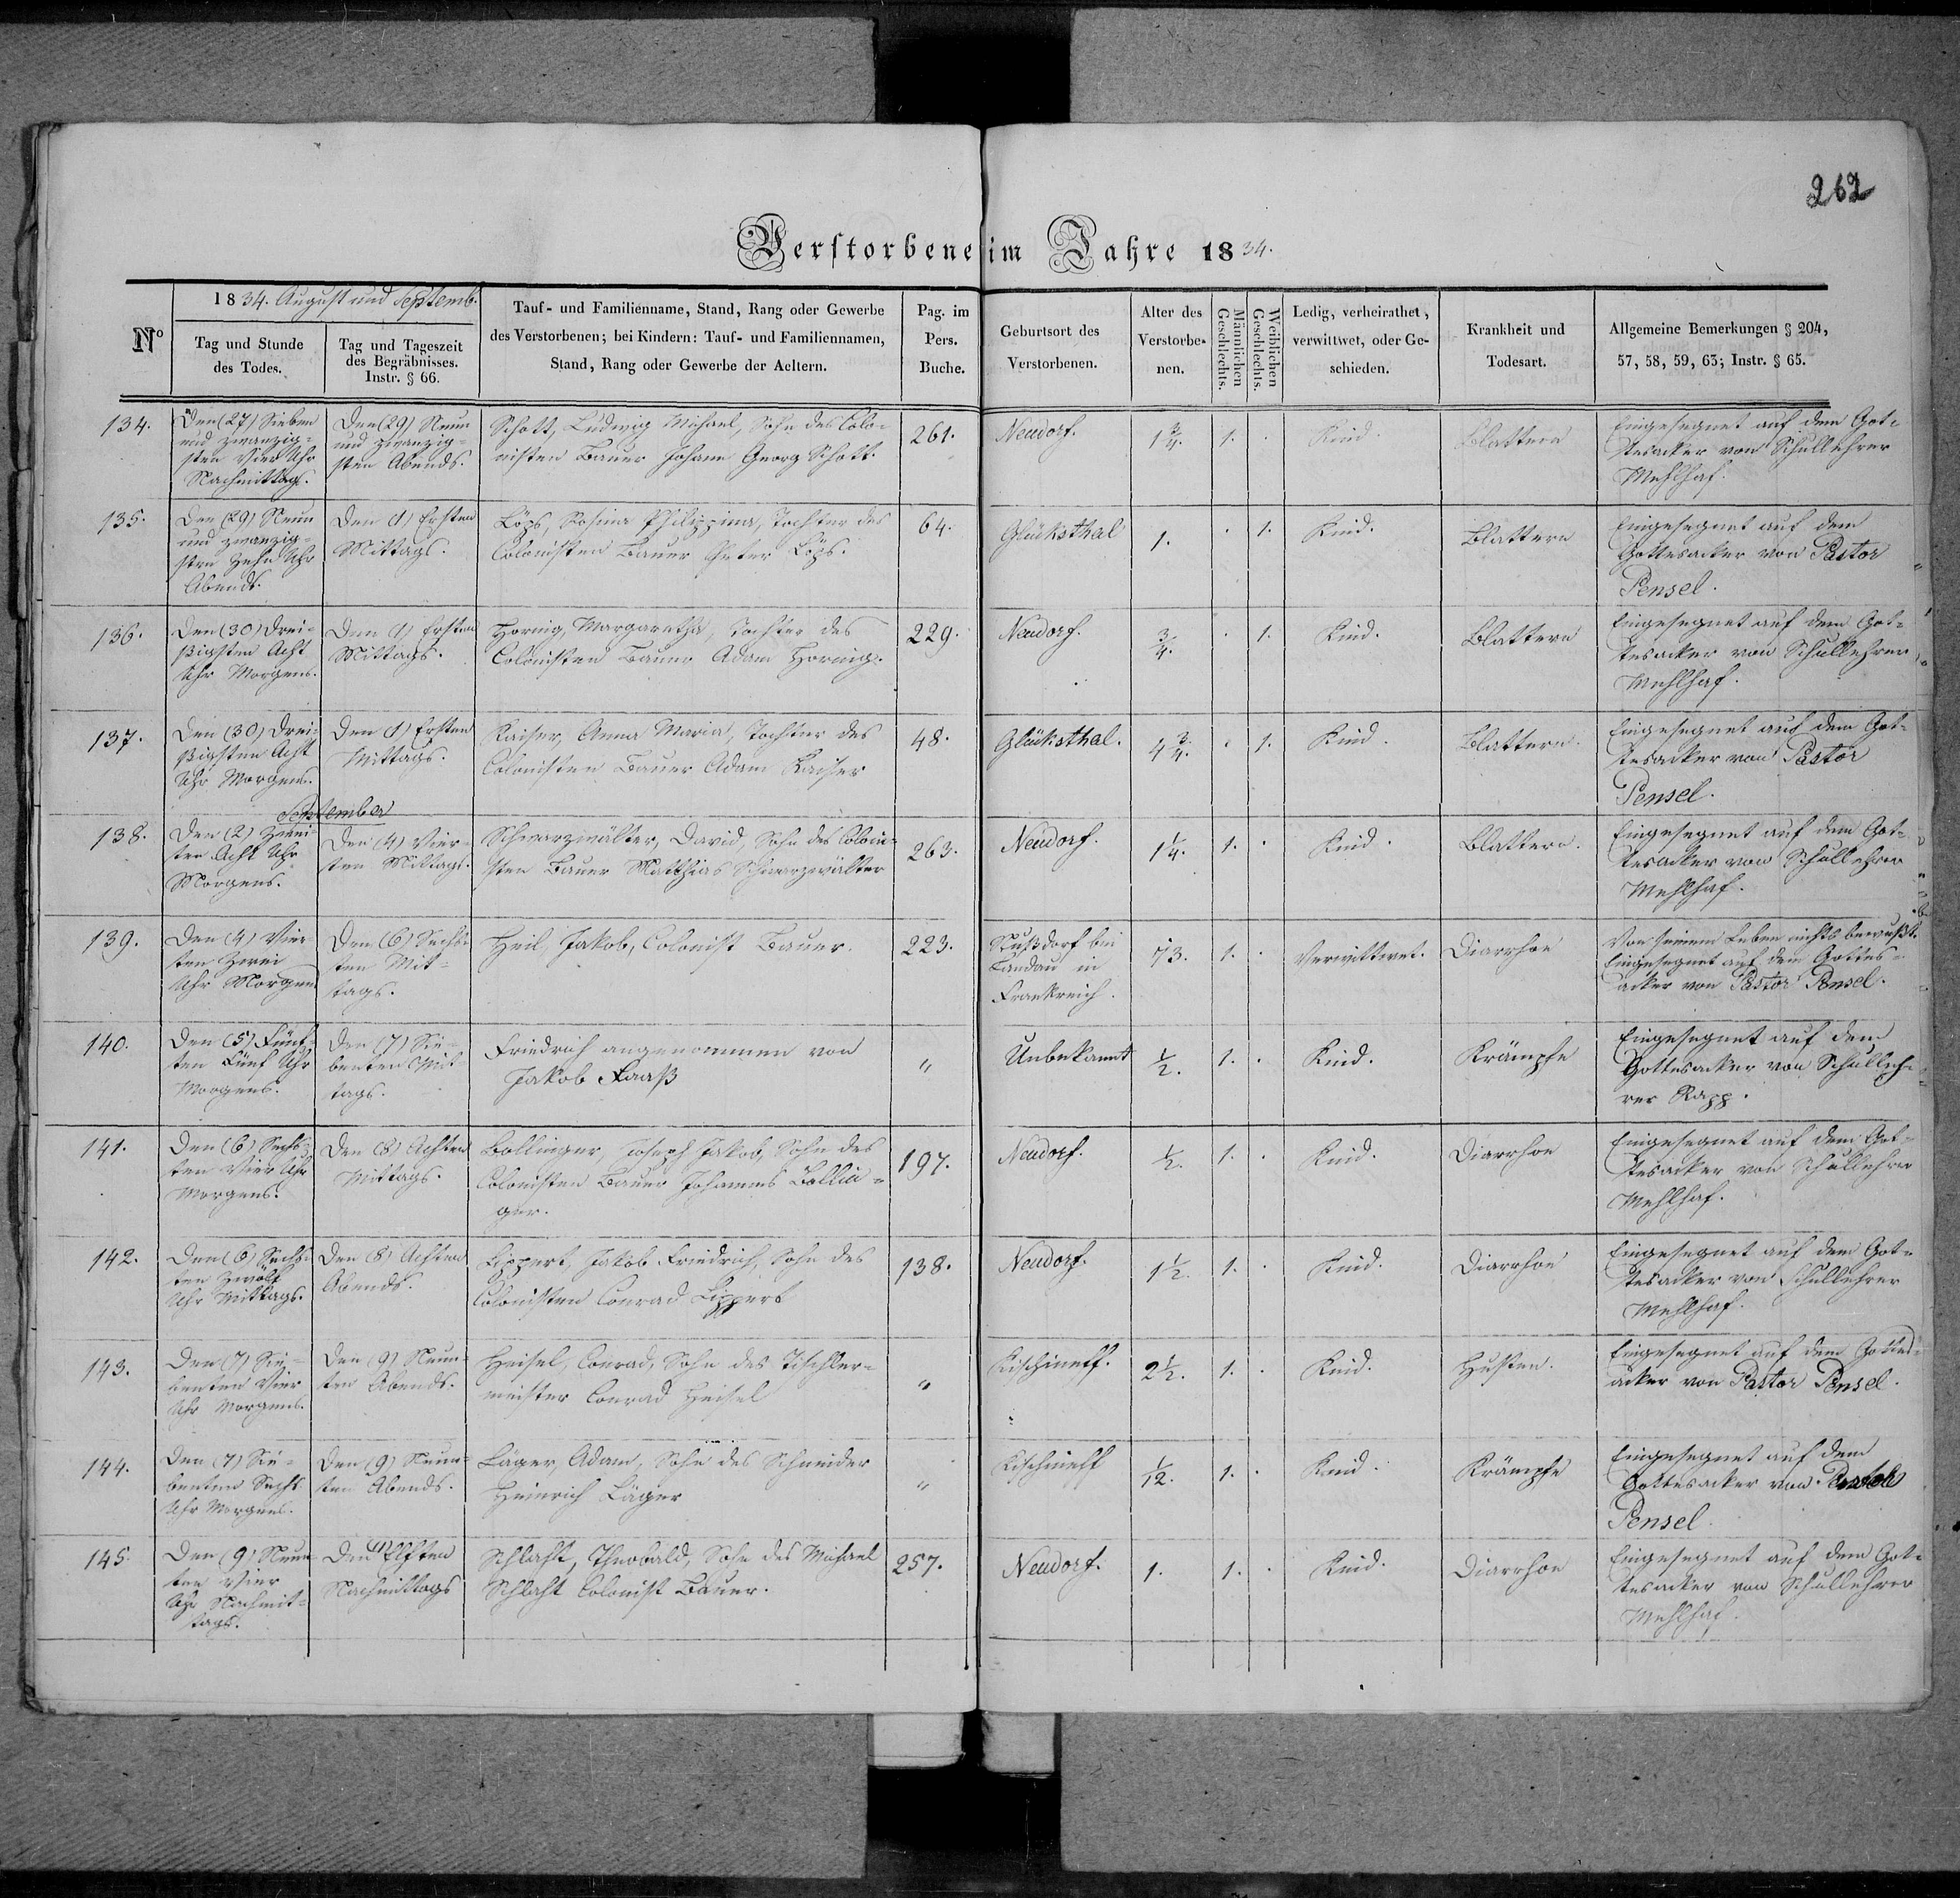 262
Verstorbene im Jahre 1834.
N°
1834. August und Septemb.
Tag und Stunde
des Todes.
Tag und Tageszeit
des Begräbnisses.
Instr. § 66.
Tauf- und Familienname, Stand, Rang oder Gewerbe
des Verstorbenen; bei Kindern: Tauf- und Familiennamen,
Stand, Rang oder Gewerbe der Aeltern.
Pag. im
Pers.
Buche.
Geburtsort des
Verstorbenen.
Alter des
Verstorbe-
nen.
Männlichen
Geschlechts.
Weiblichen
Geschlechts.
Ledig, verheirathet,
verwittwet, oder Ge-
schieden.
Krankheit und
Todesart.
Allgemeine Bemerkungen § 204,
57, 58, 59, 63; Instr. § 65.
134.
Den (27) Sieben
und zwanzig-
sten Vier Uhr
Nachmittags.
Den (29) Neun
und zwanzig-
sten Abends.
Schott, Ludwig Michael, Sohn des Colo-
nisten Bauer Johann Georg Schott.
261.
Neudorf.
1 3/4.
1.
Kind.
Blattern
Eingesegnet auf dem Got-
tesacker von Schullehrer
Mehlhaf.
135.
Den (29) Neun
und zwanzig-
sten Zehn Uhr
Abends.
Den (1) Ersten
Mittags.
Löps, Rosina Philippina, Tochter des
Colonisten Bauer Peter Löps.
64.
Glüksthal
1.
1.
Kind.
Blattern
Eingesegnet auf dem
Gottesacker von Pastor
Pensel.
136.
Den (30) Drei-
ßigsten Acht
Uhr Morgens.
Den (1) Ersten
Mittags.
Hornig, Margaretha, Tochter des
Colonisten Bauer Adam Hornig.
229.
Neudorf.
3/4.
1.
Kind.
Blattern
Eingesegnet auf dem Got-
tesacker von Schullehrer
Mehlhaf.
137.
Den (30) Drei-
ßigsten Acht
Uhr Morgens.
Den (1) Ersten
Mittags.
Kaiser, Anna Maria, Tochter des
Colonisten Bauer Adam Kaiser
48.
Glüksthal.
4 3/4.
1.
Kind.
Blattern.
Eingesegnet auf dem Got-
tesacker von Pastor
Pensel.
September
138.
Den (2) Zwei-
ten Acht Uhr
Morgens.
Den (4) Vier-
ten Mittags.
Schwarzwälter, David, Sohn des Coloni-
sten Bauer Matthias Schwarzwälter
263.
Neudorf.
1 1/4.
1.
Kind.
Blattern.
Eingesegnet auf dem Got-
tesacker von Schullehrer
Mehlhaf.
139.
Den (4) Vier-
ten Zwei
Uhr Morgens
Den (6) Sechs-
ten Mit-
tags.
Heil, Jakob, Colonist Bauer.
223.
Nußdorf bei
Landau in
Frankreich.
73.
1.
Verwittwet.
Diarrhoe
Von seinem Leben nichts bewußt.
Eingesegnet auf dem Gottes-
acker von Pastor Pensel.
140.
Den (5) Fünf-
ten Fünf Uhr
Morgens.
Den (7) Sie-
benten Mit-
tags.
Friedrich angenommen von
Jakob Faaß
"
Unbekannt
1/2.
1.
Kind.
Krämpfe
Eingesegnet auf dem
Gottesacker von Schulleh-
rer Rapp.
141.
Den (6) Sechs-
ten Vier Uhr
Morgens.
Den (8) Achten
Mittags.
Bollinger, Joseph Jakob, Sohn des
Colonisten Bauer Johannes Bollin-
ger.
197.
Neudorf.
1/2.
1.
Kind.
Diarrhoe
Eingesegnet auf dem Got-
tesacker von Schullehrer
Mehlhaf.
142.
Den (6) Sechs-
ten Zwölf
Uhr Mittags.
Den (8) Achten
Abends.
Lippert, Jakob Friedrich, Sohn des
Colonisten Conrad Lippert
138.
Neudorf.
1 1/2.
1.
Kind.
Diarrhoe
Eingesegnet auf dem Got-
tesacker von Schullehrer
Mehlhaf.
143.
Den (7) Sie-
benten Vier
Uhr Morgens.
Den (9) Neun-
ten Abends.
Heisel, Conrad, Sohn des Tischler-
meister Conrad Heisel
"
Kischineff.
2 1/2.
1.
Kind.
Husten.
Eingesegnet auf dem Gottes-
acker von Pastor Pensel.
144.
Den (7) Sie-
benten Sechs
Uhr Morgens.
Den (9) Neun-
ten Abends.
Läger, Adam, Sohn des Schneider
Heinrich Läger
"
Kischineff
1/12.
1.
Kind.
Krämpfe
Eingesegnet auf dem
Gottesacker von Pastor
Pensel.
145.
Den (9) Neun-
ten Vier
Uhr Nachmit-
tags.
Den (11) Elften
Nachmittags
Schlaht, Theobald, Sohn des Michael
Schlaht Colonist Bauer.
257.
Neudorf.
1.
1.
Kind.
Diarrhoe
Eingesegnet auf dem Got-
tesacker von Schullehrer
Mehlhaf.